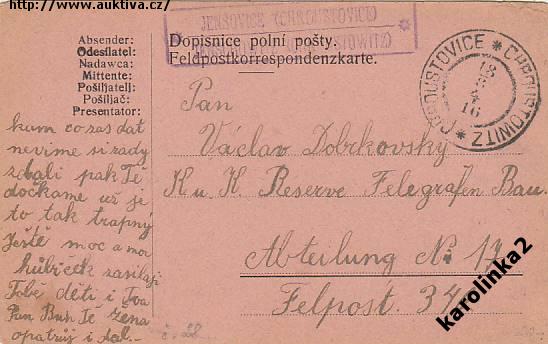 http://www.auktiva.cz/
JENŠOVICE (CHROUSTOVICE)
Absender:
Odesílatel:
Nadawca:
Mittente:
Pošiljatelj:
Pošiljač:
Presentator:
Dopisnice polní pošty.
Feldpostkorrespondenzkarte.
CHROUSTOVICE * CHROUSTOWITZ *
18
16
Pan
Václav Dobrkovský
K u. K Reserve Felegrafen Bau.
Abteilung No: 17
Felpost. 34
kum co zas dat
nevíme si rady
zdali pak Tě
dočkame už je
to tak trapný
Ještě moc a mo
hubiček zasilaji
Tobě děti i Tva
Pan Buh Te žena
opatruj i dal.-
č. 28
karolinka2